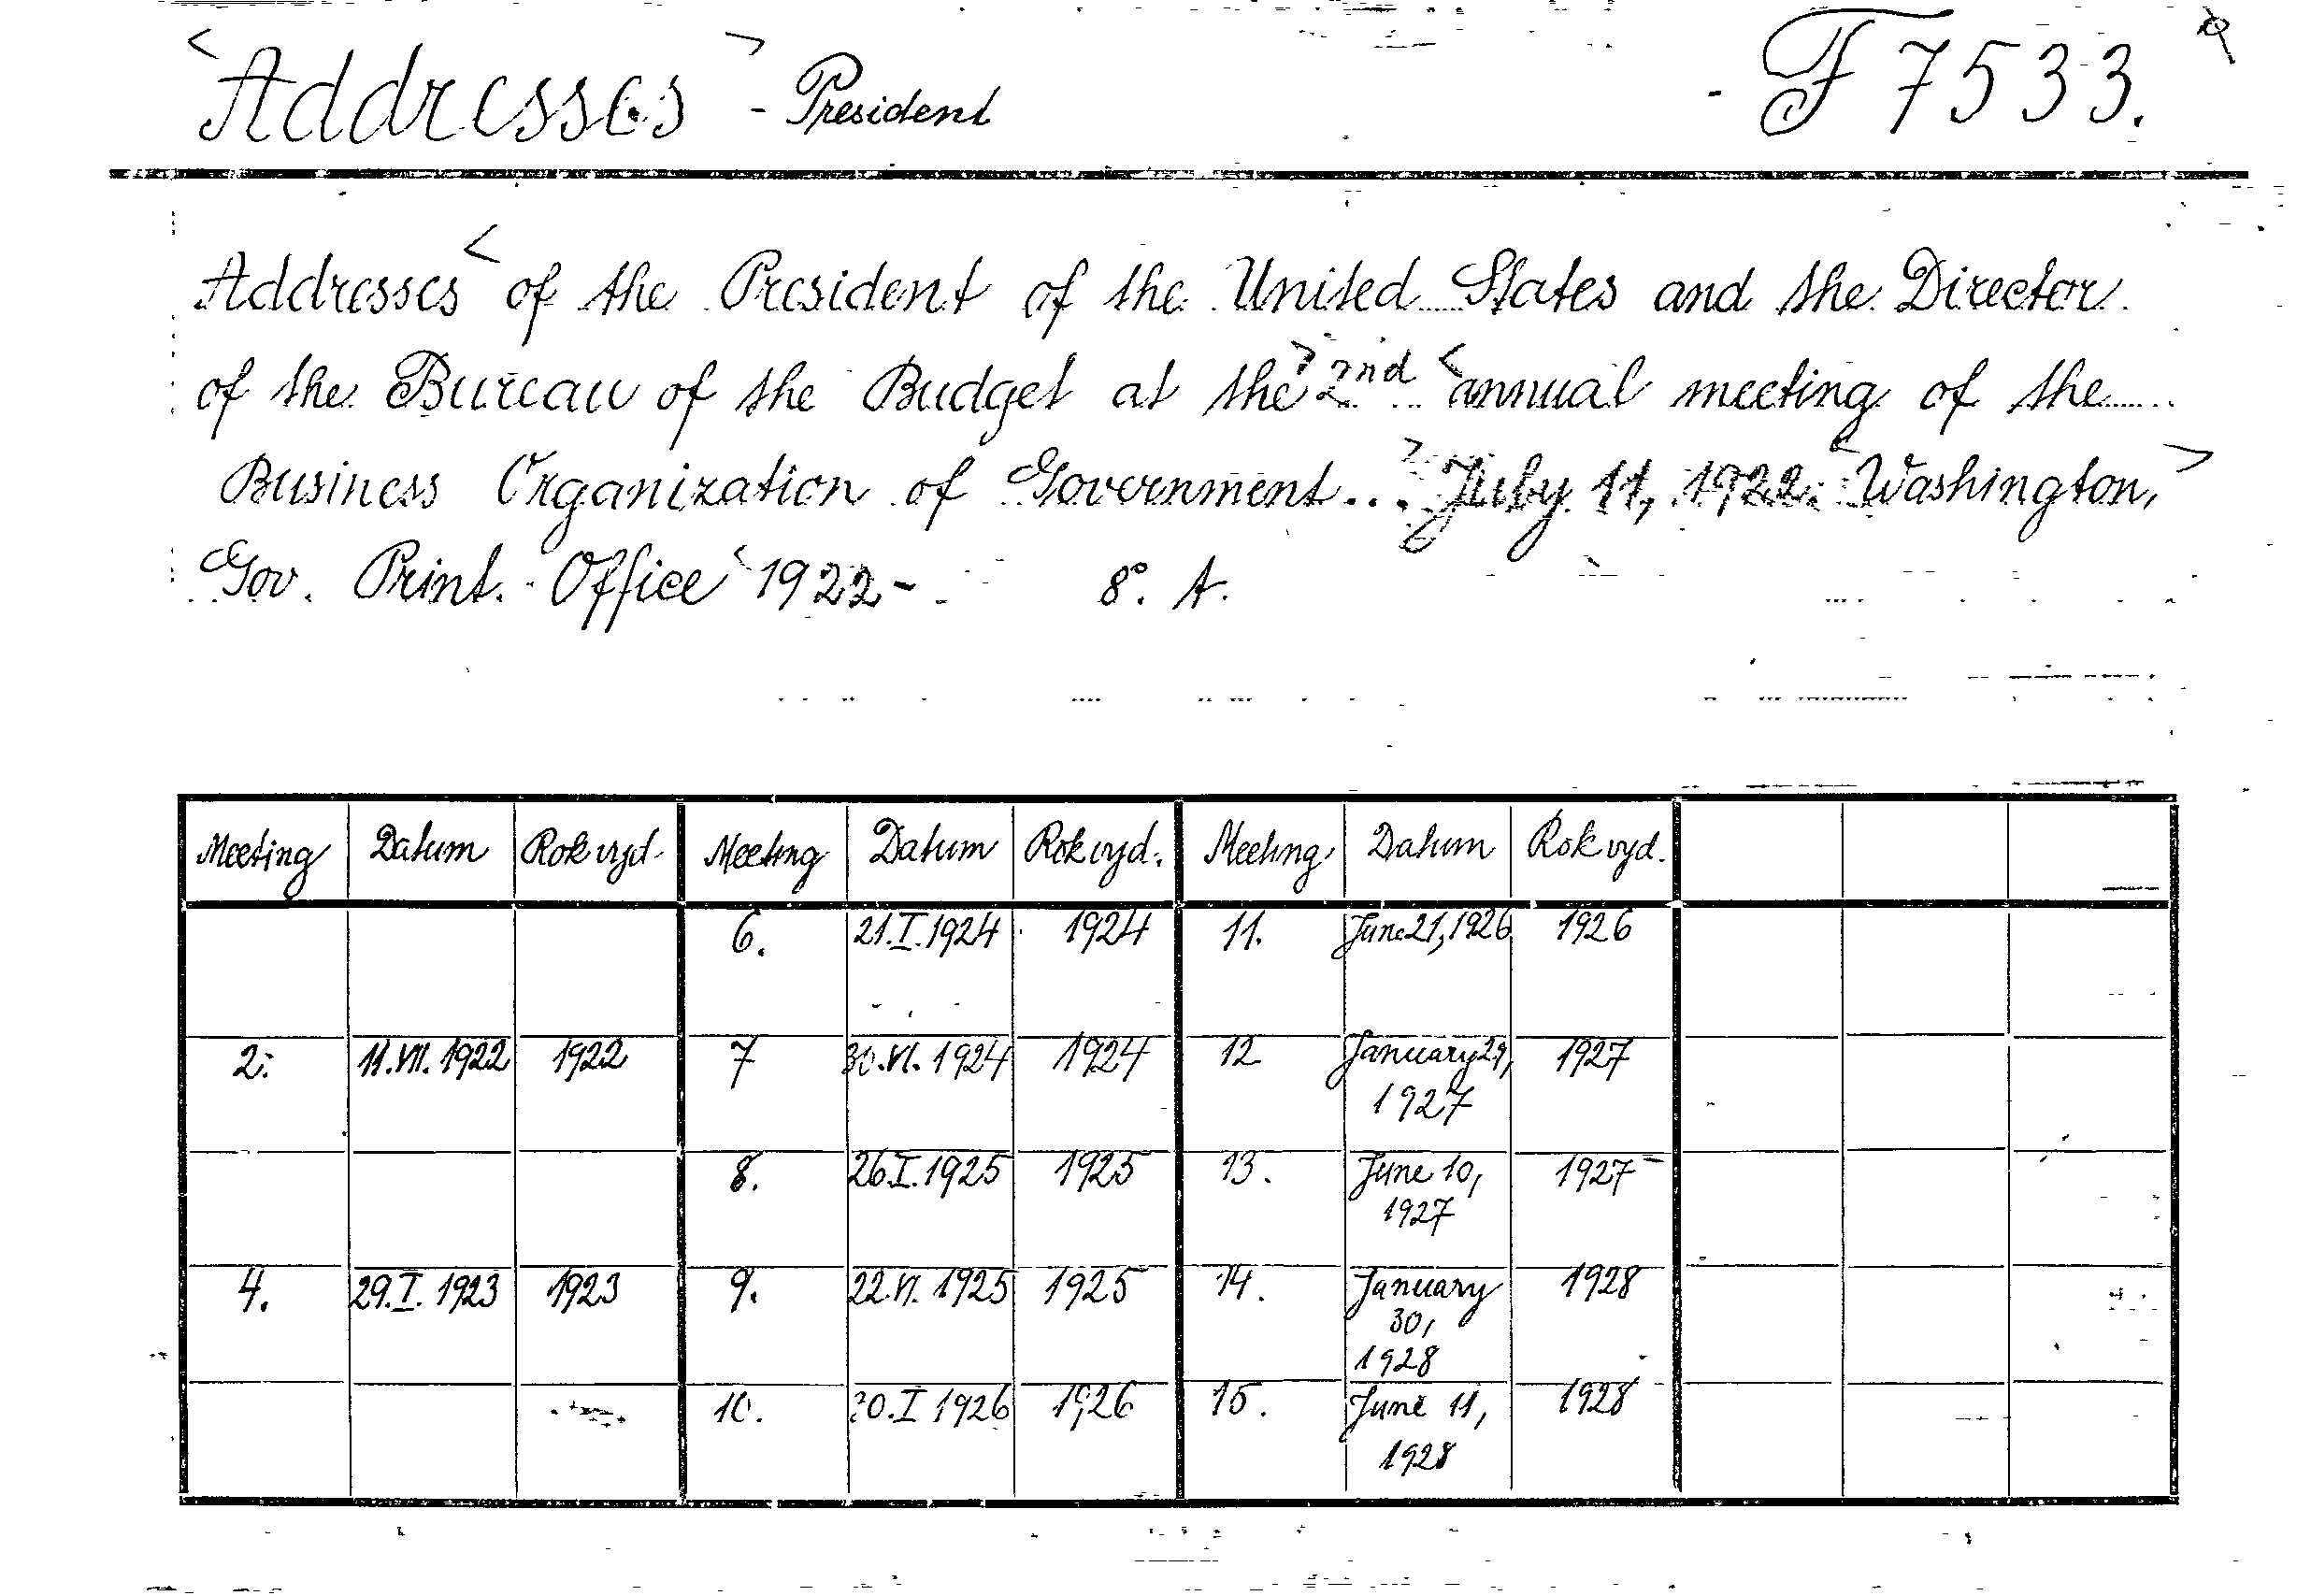 Addresses - President - F 7533.
Addresses of the President of the United States and the Director
of the Bureau of the Budget at the 2nd annual meeting of the
Business Organization of Government... July 11, 1922. Washington,
Gov. Print. Office 1922- 8°. A.
Meeting Datum Rok vyd. Meeting Datum Rok vyd. Meeting Datum Rok vyd.
6. 21.I.1924 1924 11. June 21, 1926 1926
2. 11.VII.1922 1922 7 30.VI.1924 1924 12 January 29, 1927
1927
8. 26.I.1925 1925 13. June 10, 1927
1927
4. 29.I.1923 1923 9. 22.VI.1925 1925 14. January 1928
30,
1928
10. 30.I 1926 1926 15. June 11, 1928
1928